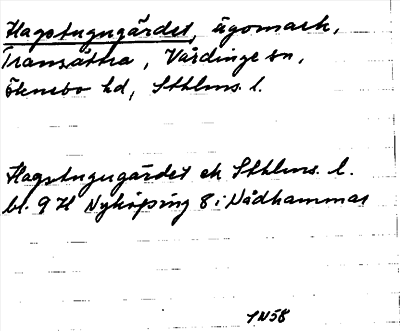 Hagstugugärdet, ägomark,
Transättra, Vårdinge sn,
Öknebo hd, Sthlms. l.
Hagstugugärdet ek Sthlms. l.
bl. 9 H Nyköping 8 i Nådhammar
JN58